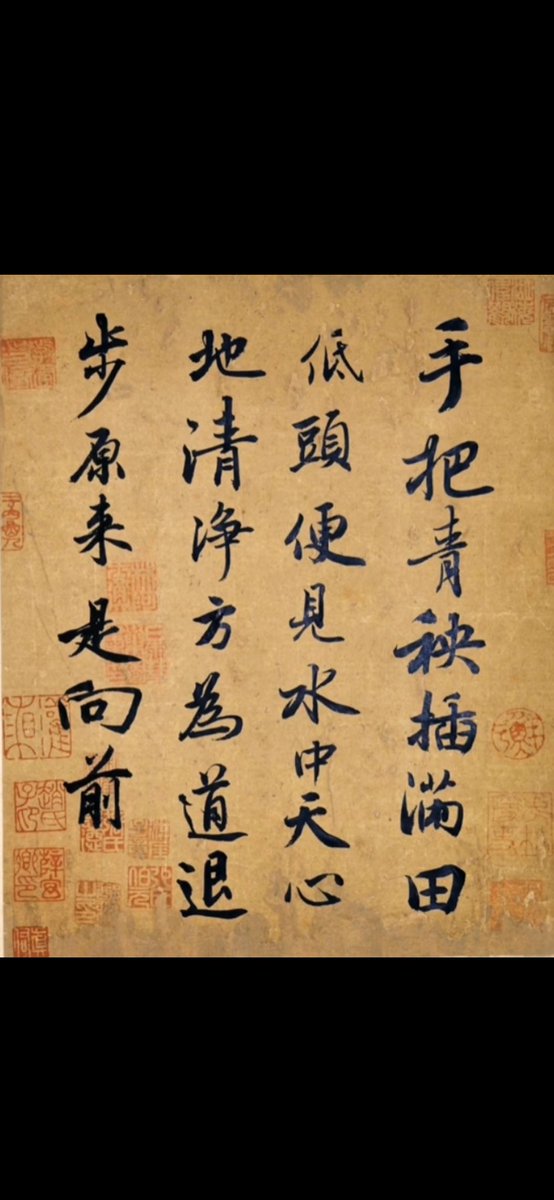 手把青秧插滿田
低頭便見水中天心
地清淨方為道退
步原来是向前